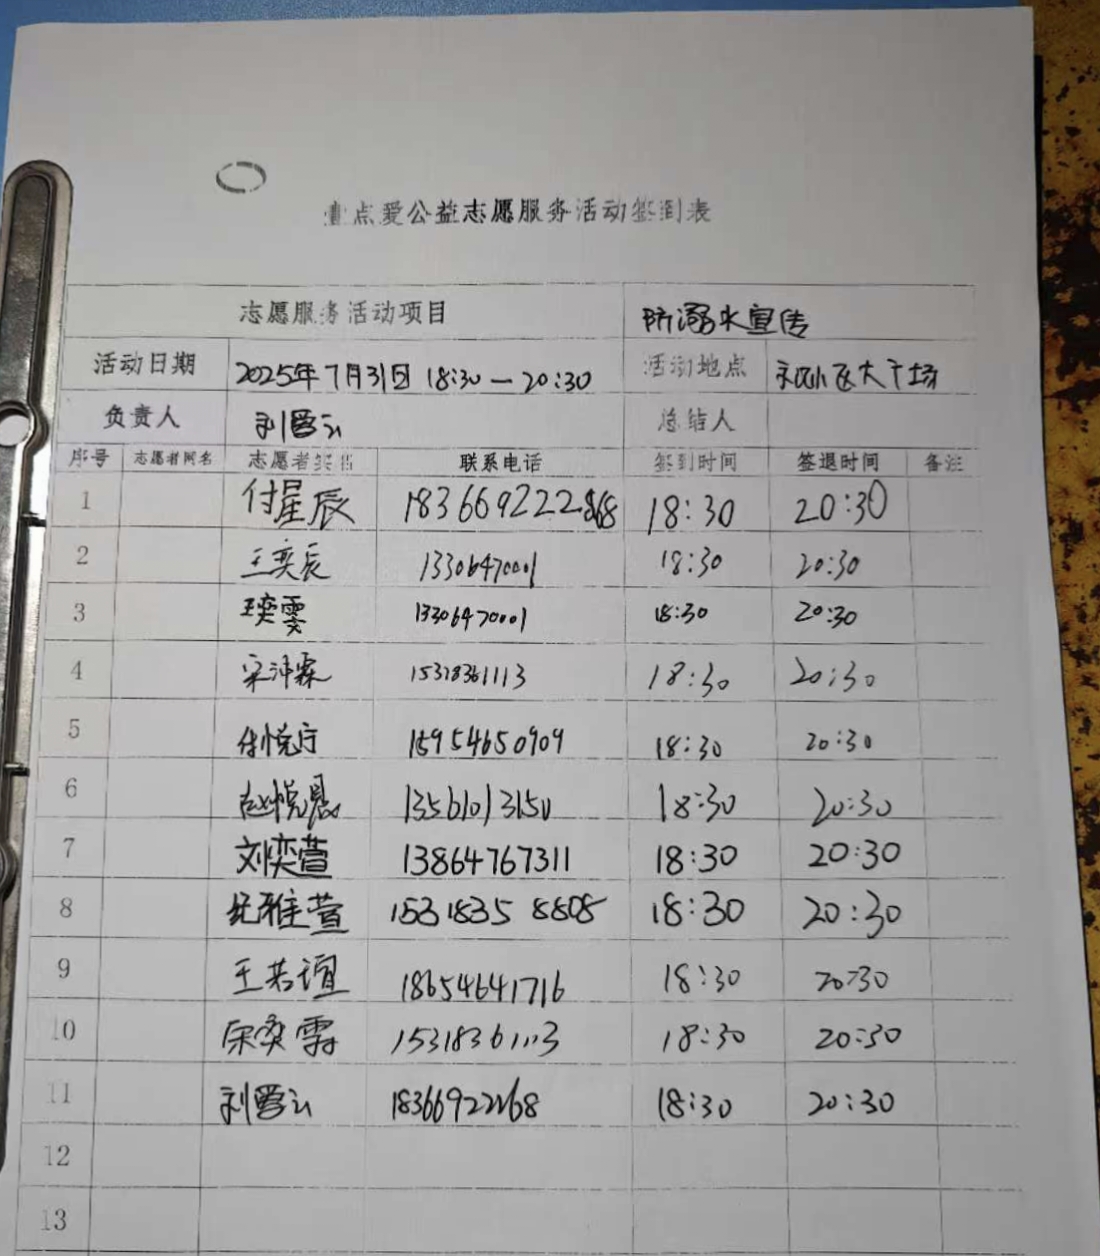 壹点爱公益志愿服务活动签到表
志愿服务活动项目 防溺水宣传
活动日期 2025年7月31日 18:30—20:30 活动地点
负责人 总结人
序号 志愿者网名 志愿者签名 联系电话 签到时间 签退时间 备注
1 付星辰 18:30 20:30
2 王奕辰 13306470001 18:30 20:30
3 王奕雯 13306470001 18:30 20:30
4 宋沛霖 15318361113 18:30 20:30
5 15954650909 18:30 20:30
6 赵悦恩 13561013150 18:30 20:30
7 刘奕萱 13864767311 18:30 20:30
8 纪雅萱 15318358808 18:30 20:30
9 王若谊 18654641716 18:30 20:30
10 宋奕霏 15318361113 18:30 20:30
11 18366922268 18:30 20:30
12
13